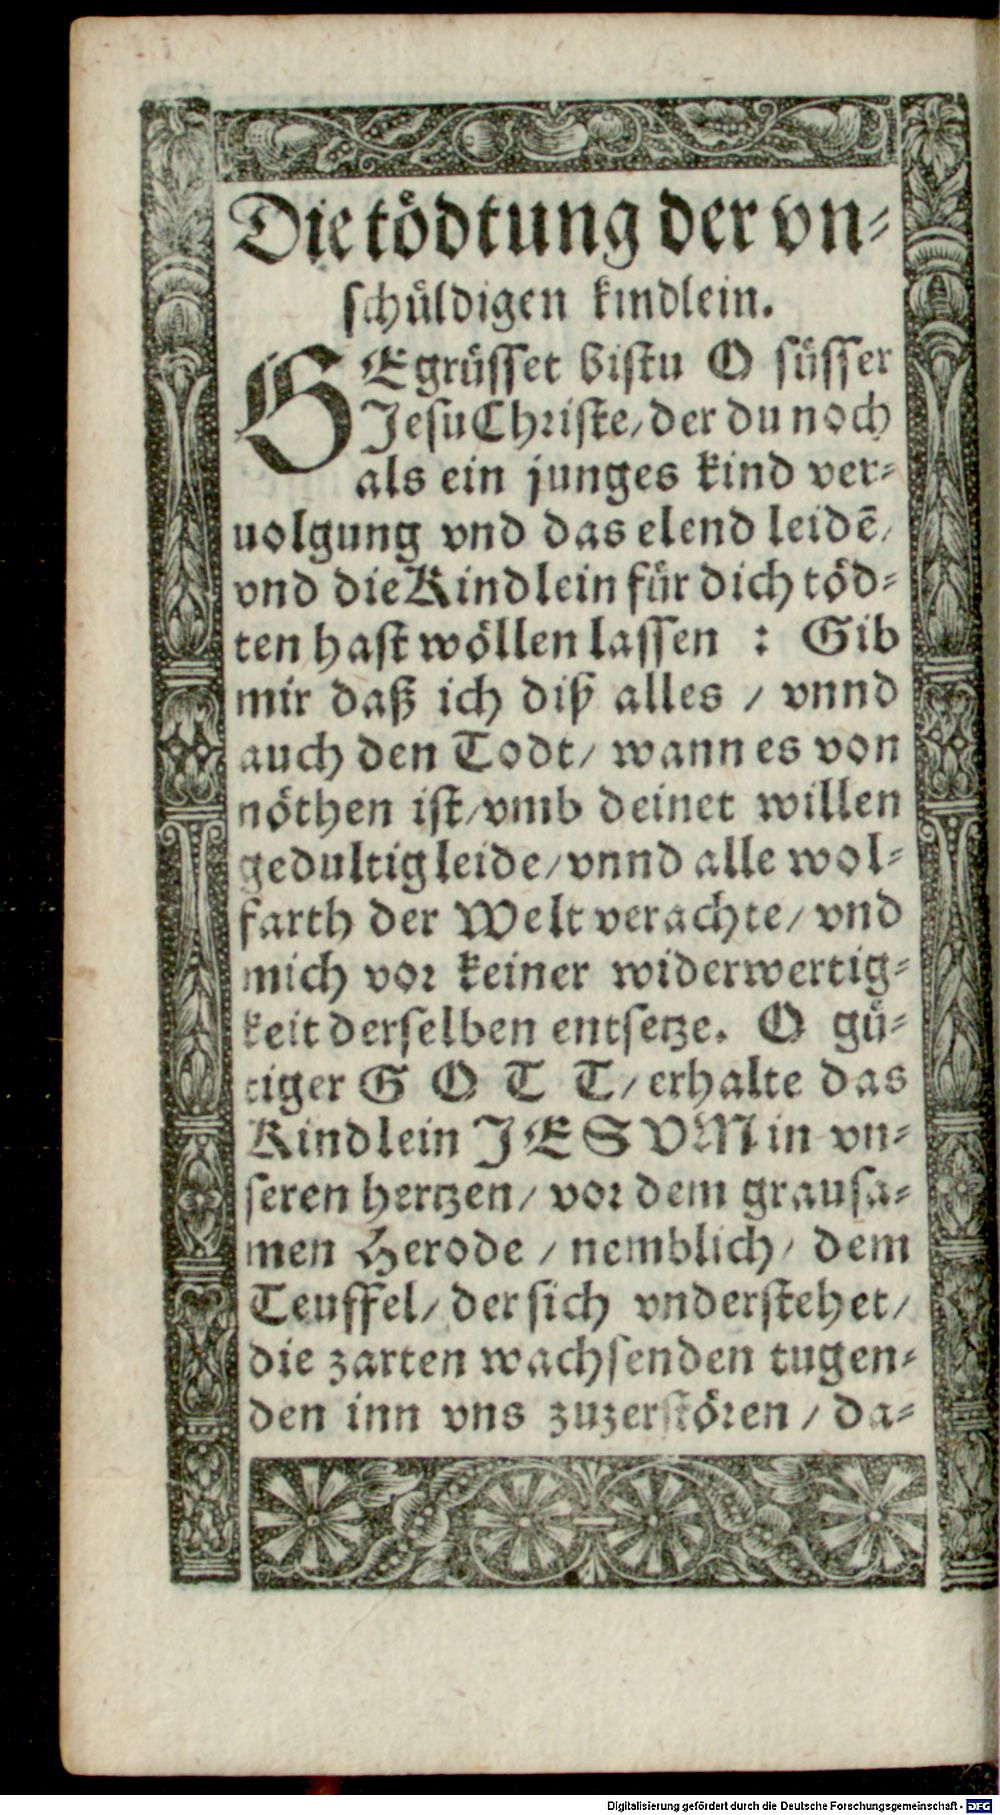 Die tödtung der vn-
schüldigen kindlein.
GEgrüsset bistu O süsser
Jesu Christe/ der du noch
als ein junges kind ver-
uolgung vnd das elend leidē/
vnd die Kindlein für dich töd-
ten hast wöllen lassen : Gib
mir daß ich diß alles / vnnd
auch den Todt/ wann es von
nöthen ist/ vmb deinet willen
gedultig leide/ vnnd alle wol-
farth der Welt verachte/ vnd
mich vor keiner widerwertig-
keit derselben entsetze. O gü-
tiger G O T T/ erhalte das
Kindlein JESVM in vn-
seren hertzen/ vor dem grausa-
men Herode / nemblich/ dem
Teuffel/ der sich vnderstehet/
die zarten wachsenden tugen-
den inn vns zuzerstören / da-
Digitalisierung gefördert durch die Deutsche Forschungsgemeinschaft - DFG